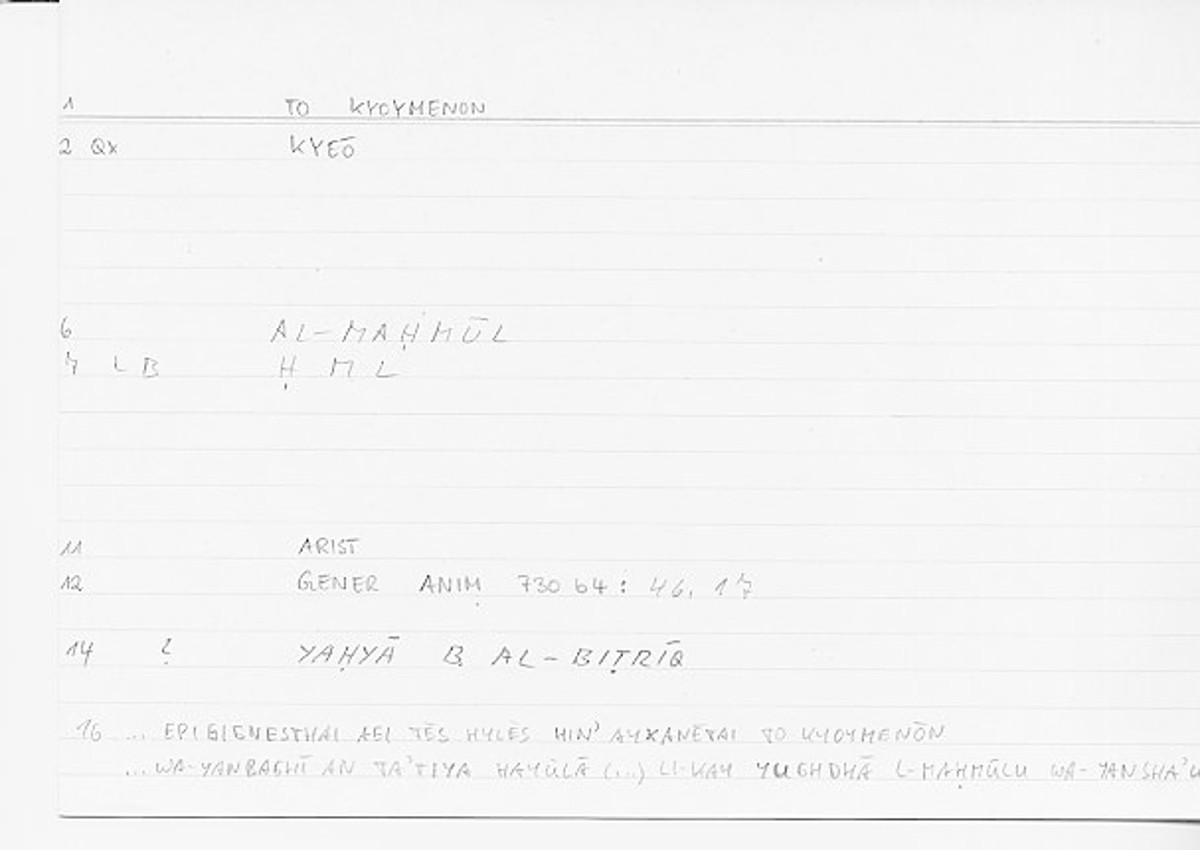 1 TO KYOYMENON
2 Qx KYEŌ
6 AL-MAḤMŪL
7 L B Ḥ M L
11 ARIST
12 GENER ANIM 730 b4: 46, 17
14 ? YAḤYĀ B. AL-BIṬRĪQ
16 ... EPIGIGNESTHAI AEI TĒS HYLĒS HIN' AYXANĒTAI TO KYOYMENŌN
... WA-YANBAGHĪ AN TA'TIYA HAYŪLĀ (...) LI-KAY YUGHDHĀ L-MAḤMŪLU WA-YANSHA'U